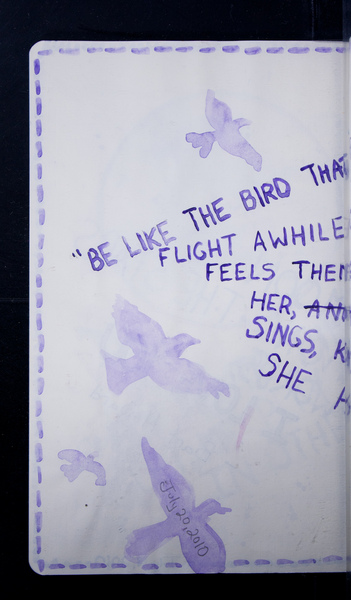 "BE LIKE THE BIRD THAT
FLIGHT AWHILE
FEELS THEM
HER,
SINGS,
SHE
July 20, 2010